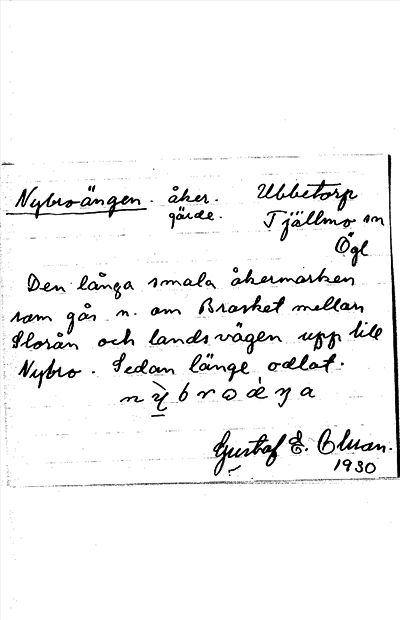 Nybroängen. åker. Ubbetorp
gärde. Tjällmo sn
Ögl
Den långa smala åkermarken
som går n. om Brasket mellan
Storån och landsvägen upp till
Nybro. Sedan länge odlat.
Gustaf E.
1930